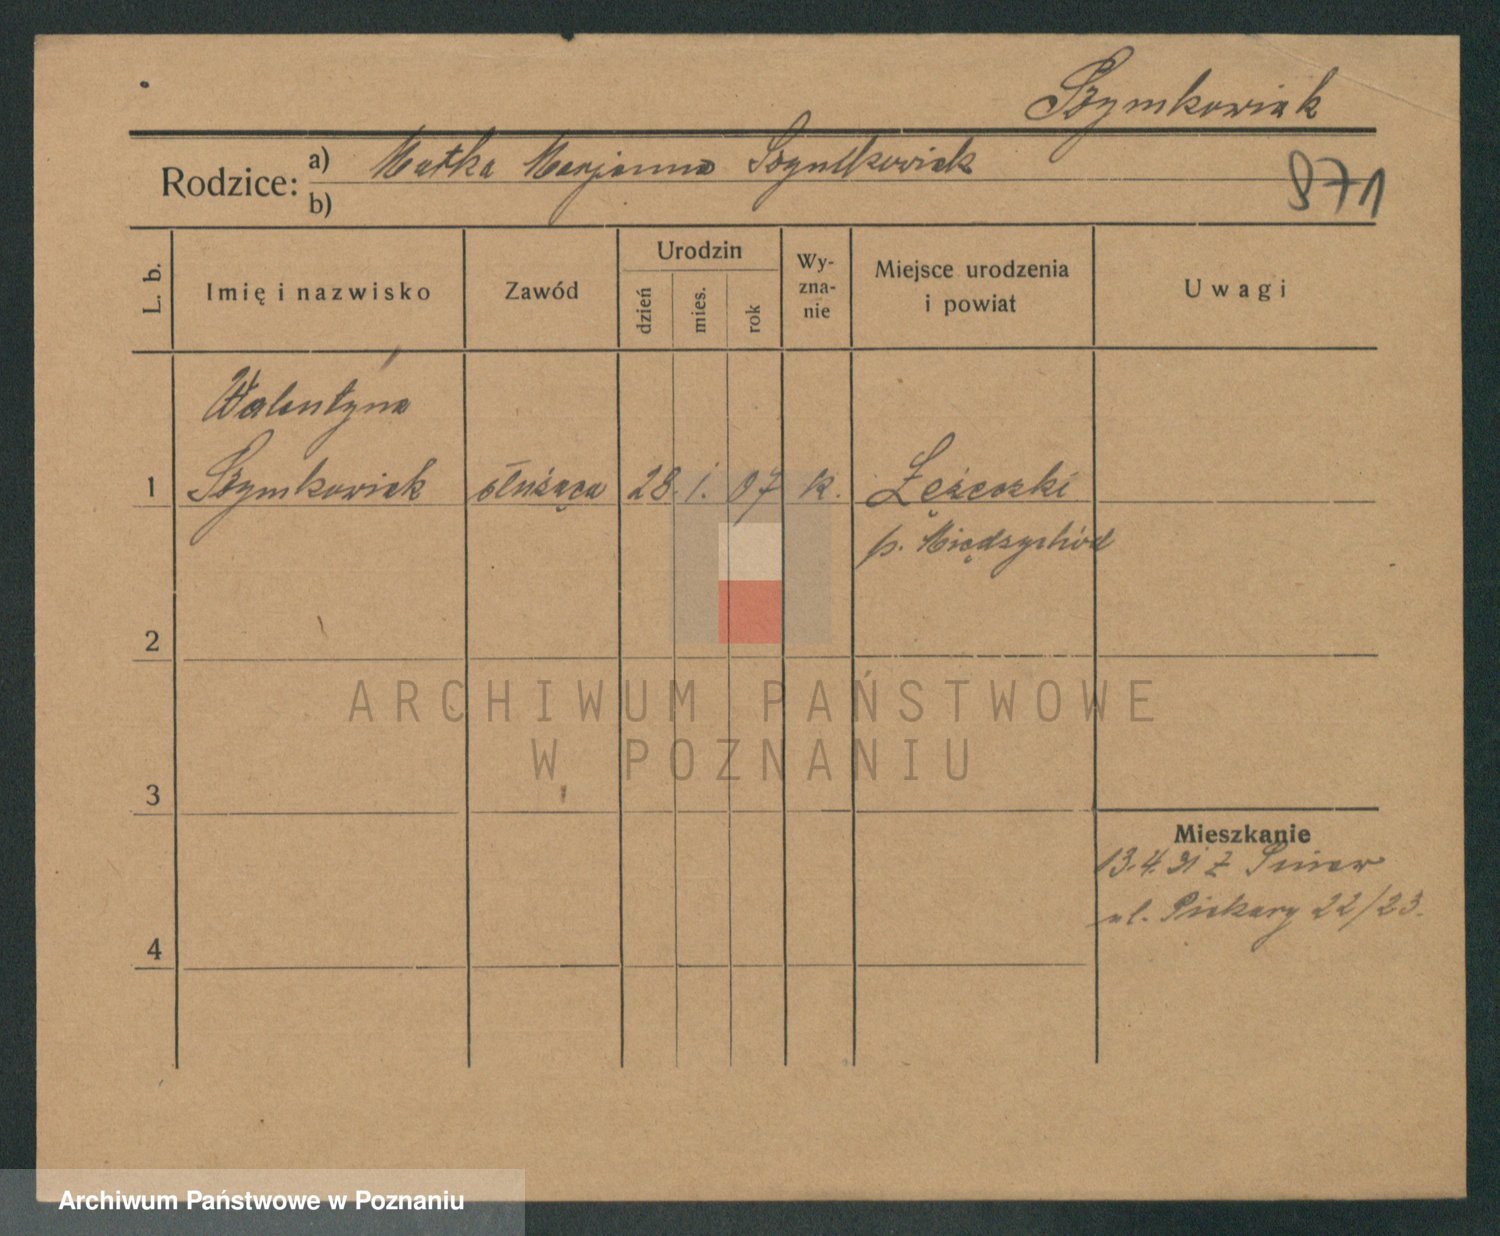 Szymkowiak
Rodzice: a) Matka Marjanna Szymkowiak
b)
871
L. b.
Imię i nazwisko
Zawód
Urodzin
dzień
mies.
rok
Wy-
zna-
nie
Miejsce urodzenia
i powiat
Uwagi
Walentyna
1 Szymkowiak służąca 28. 1. 07 k. Łężeczki
p. Międzychód
2
3
4
Mieszkanie
13.4.31 z
ul. Piekary 22/23.
ARCHIWUM PAŃSTWOWE
W POZNANIU
Archiwum Państwowe w Poznaniu